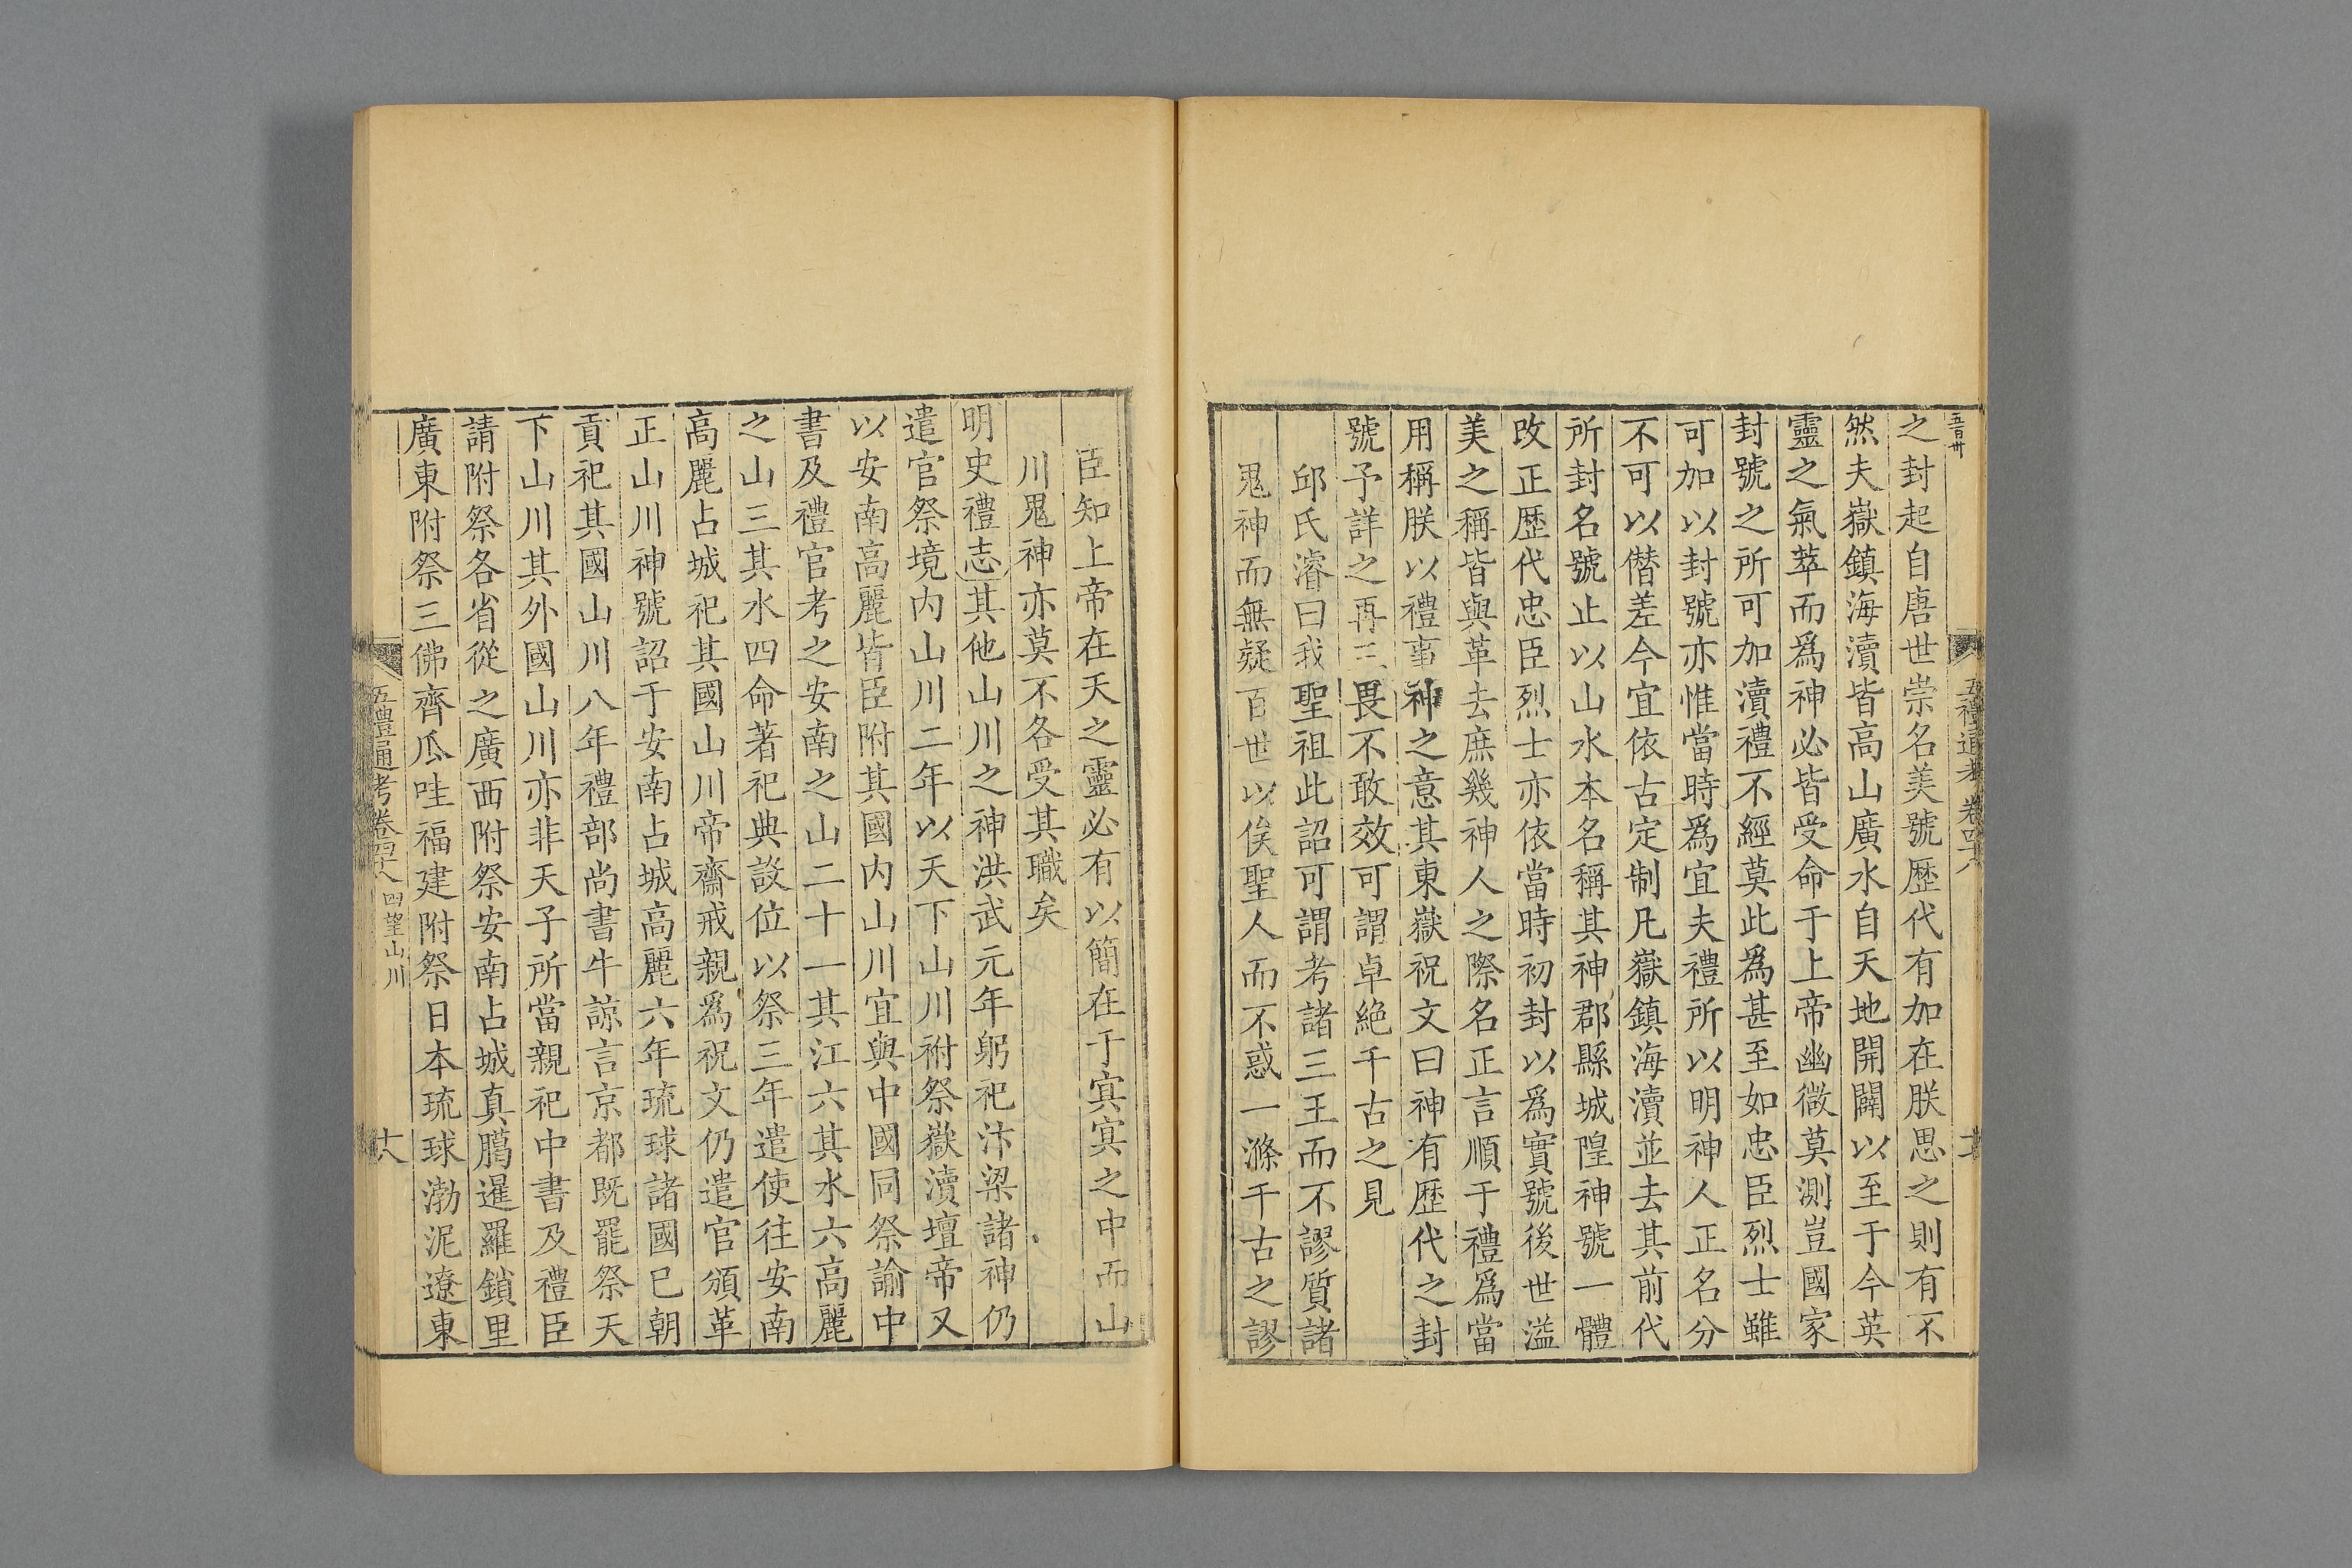 五百卅
五禮通考 卷四十八
之封起自唐世崇名美號歷代有加在朕思之則有不
然夫嶽鎮海瀆皆高山廣水自天地開闢以至于今英
靈之氣萃而爲神必皆受命于上帝幽微莫測豈國家
封號之所可加瀆禮不經莫此爲甚至如忠臣烈士雖
可加以封號亦惟當時爲宜夫禮所以明神人正名分
不可以僭差今宜依古定制凡嶽鎮海瀆並去其前代
所封名號止以山水本名稱其神郡縣城隍神號一體
改正歷代忠臣烈士亦依當時初封以爲實號後世溢
美之稱皆與革去庶幾神人之際名正言順于禮爲當
用稱朕以禮事神之意其東嶽祝文曰神有歷代之封
號予詳之再三畏不敢效可謂卓絶千古之見
邱氏濬曰我聖祖此詔可謂考諸三王而不謬質諸
鬼神而無疑百世以俟聖人而不惑一滌千古之謬
臣知上帝在天之靈必有以簡在于冥冥之中而山
川鬼神亦莫不各受其職矣
明史禮志其他山川之神洪武元年躬祀汴梁諸神仍
遣官祭境内山川二年以天下山川祔祭嶽瀆壇帝又
以安南高麗皆臣附其國内山川宜與中國同祭諭中
書及禮官考之安南之山二十一其江六其水六高麗
之山三其水四命著祀典設位以祭三年遣使往安南
高麗占城祀其國山川帝齋戒親爲祝文仍遣官頒革
正山川神號詔于安南占城高麗六年琉球諸國已朝
貢祀其國山川八年禮部尚書牛諒言京都既罷祭天
下山川其外國山川亦非天子所當親祀中書及禮臣
請附祭各省從之廣西附祭安南占城真臈暹羅鎖里
廣東附祭三佛齊爪哇福建附祭日本琉球渤泥遼東
五禮通考卷四十八 四望山川 十八